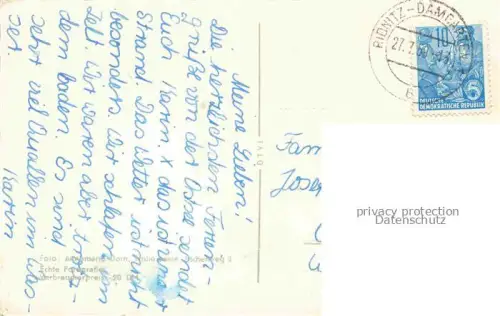 Meine Lieben!
Die herzlichsten Ferien-
grüße von der Ostsee sendet
Euch Karin. x das ist unser
Strand. Das Wetter ist nicht
besonders. Wir schlafen im
Zelt. Wir waren aber trotz-
dem baden. Es sind
sehr viel Quallen im Was-
ser
Karin
Echte Fotografie
Verbraucherpreis
Fam
Jose
RIBNITZ-DAMGARTEN
27.7.
10
5
DEUTSCHE
DEMOKRATISCHE REPUBLIK
privacy protection
Datenschutz